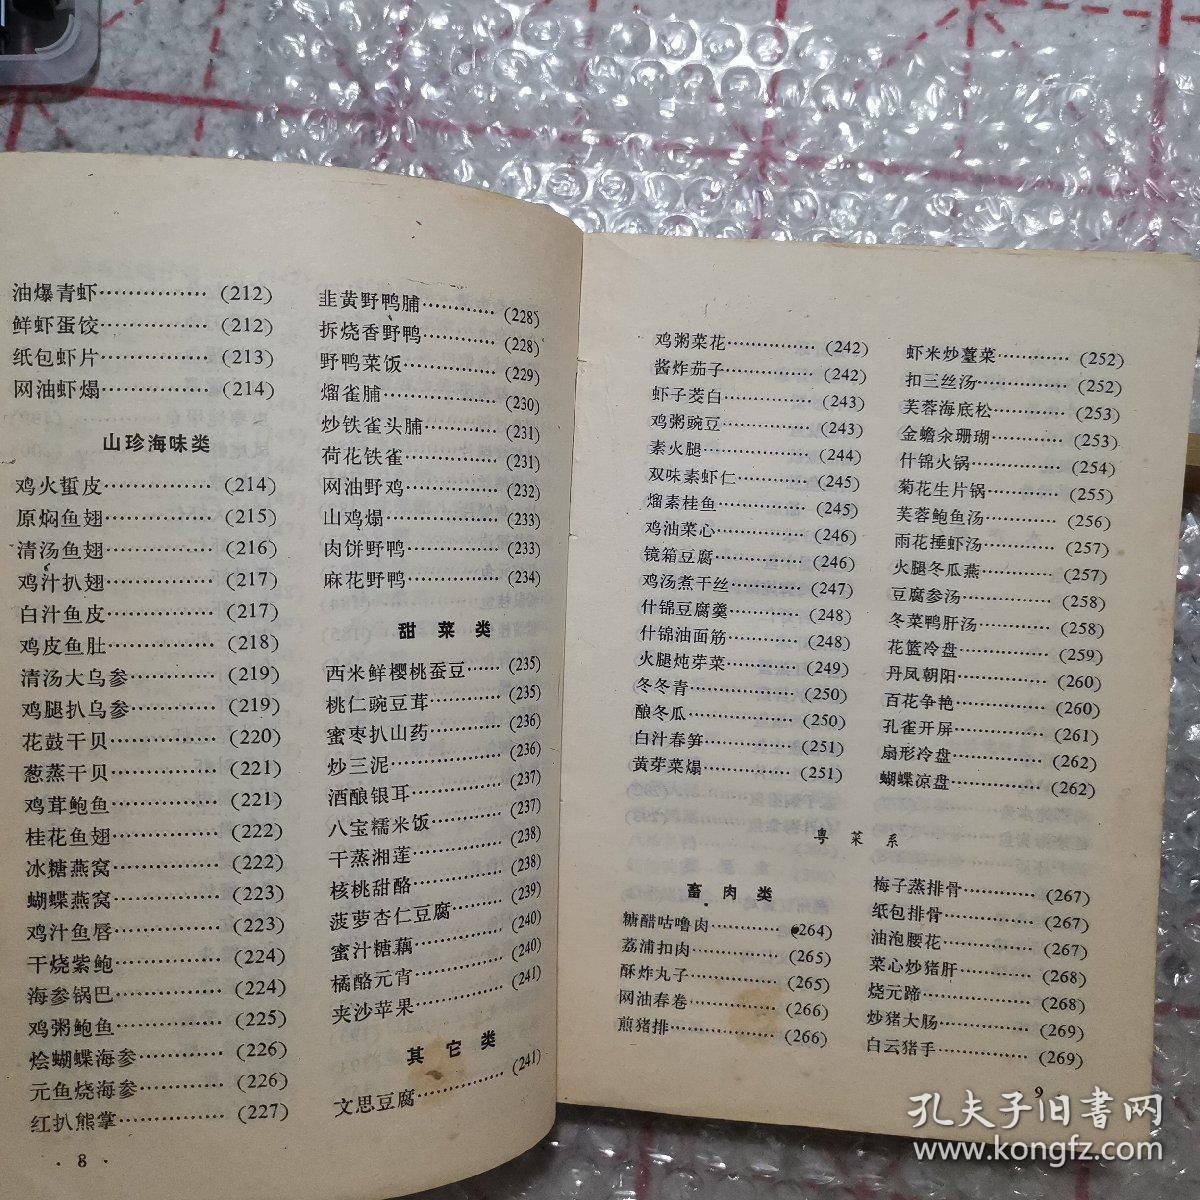 油爆青虾…………… (212)
鲜虾蛋饺…………… (212)
纸包虾片…………… (213)
网油虾塌…………… (214)
山珍海味类
鸡火蜇皮…………… (214)
原焖鱼翅…………… (215)
清汤鱼翅…………… (216)
鸡汁扒翅…………… (217)
白汁鱼皮…………… (217)
鸡皮鱼肚…………… (218)
清汤大乌参………… (219)
鸡腿扒乌参………… (219)
花鼓干贝…………… (220)
葱蒸干贝…………… (221)
鸡茸鲍鱼…………… (221)
桂花鱼翅…………… (222)
冰糖燕窝…………… (222)
蝴蝶燕窝…………… (223)
鸡汁鱼唇…………… (223)
干烧紫鲍…………… (224)
海参锅巴…………… (224)
鸡粥鲍鱼…………… (225)
烩蝴蝶海参………… (226)
元鱼烧海参………… (226)
红扒熊掌…………… (227)
· 8 ·
韭黄野鸭脯………… (228)
拆烧香野鸭………… (228)
野鸭菜饭…………… (229)
熘雀脯……………… (230)
炒铁雀头脯………… (231)
荷花铁雀…………… (231)
网油野鸡…………… (232)
山鸡塌……………… (233)
肉饼野鸭…………… (233)
麻花野鸭…………… (234)
甜菜类
西米鲜樱桃蚕豆…… (235)
桃仁豌豆茸………… (235)
蜜枣扒山药………… (236)
炒三泥……………… (236)
酒酿银耳…………… (237)
八宝糯米饭………… (237)
干蒸湘莲…………… (238)
核桃甜酪…………… (238)
菠萝杏仁豆腐……… (239)
蜜汁糖藕…………… (240)
橘酪元宵…………… (240)
夹沙苹果…………… (241)
其它类
文思豆腐…………… (241)
鸡粥菜花…………… (242)
酱炸茄子…………… (242)
虾子茭白…………… (243)
鸡粥豌豆…………… (243)
素火腿……………… (244)
双味素虾仁………… (245)
熘素桂鱼…………… (245)
鸡油菜心…………… (246)
镜箱豆腐…………… (246)
鸡汤煮干丝………… (247)
什锦豆腐羹………… (248)
什锦油面筋………… (248)
火腿炖芽菜………… (249)
冬冬青……………… (250)
酿冬瓜……………… (250)
白汁春笋…………… (251)
黄芽菜塌…………… (251)
虾米炒薹菜………… (252)
扣三丝汤…………… (252)
芙蓉海底松………… (253)
金蟾汆珊瑚………… (253)
什锦火锅…………… (254)
菊花生片锅………… (255)
芙蓉鲍鱼汤………… (256)
雨花捶虾汤………… (257)
火腿冬瓜燕………… (257)
豆腐参汤…………… (258)
冬菜鸭肝汤………… (258)
花篮冷盘…………… (259)
丹凤朝阳…………… (260)
百花争艳…………… (260)
孔雀开屏…………… (261)
扇形冷盘…………… (262)
蝴蝶凉盘…………… (262)
粤菜系
畜肉类
糖醋咕噜肉………… (264)
荔浦扣肉…………… (265)
酥炸丸子…………… (265)
网油春卷…………… (266)
煎猪排……………… (266)
梅子蒸排骨………… (267)
纸包排骨…………… (267)
油泡腰花…………… (267)
菜心炒猪肝………… (268)
烧元蹄……………… (268)
炒猪大肠…………… (269)
白云猪手…………… (269)
9
孔夫子旧书网
www.kongfz.com